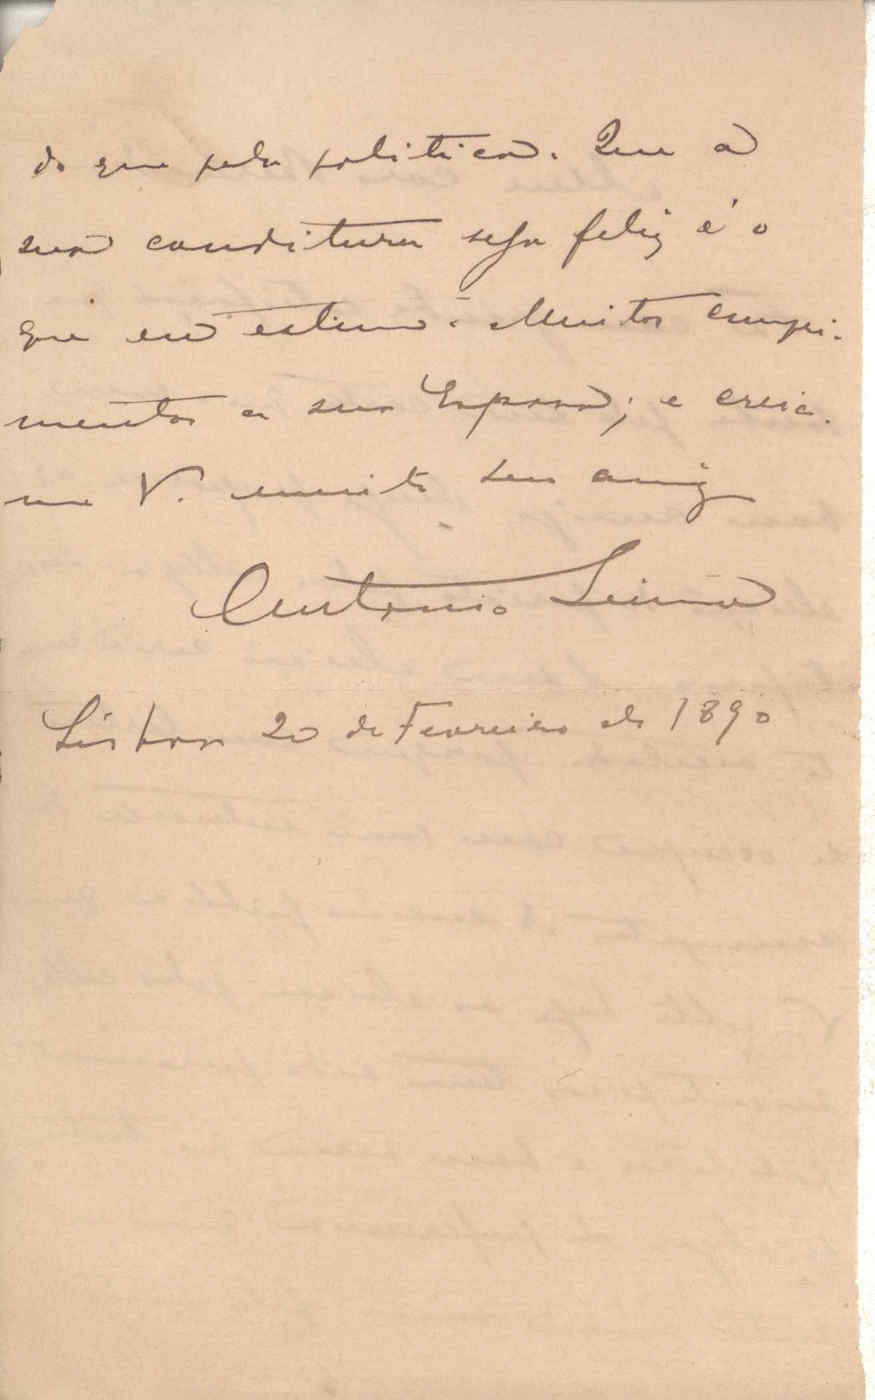 do que pela politica. Que a
sua canditura seja feliz é o
que eu estimo. Muitos cumpri-
mentos a sua Esposa; e creia-
me V. muito seu amigo
Antonio Lima
Lisboa 20 de Fevereiro de 1890